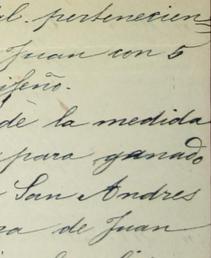 al. pertenecien
Juan con 5
ifeño.
de la medida
para ganado
San Andres
ra de Juan